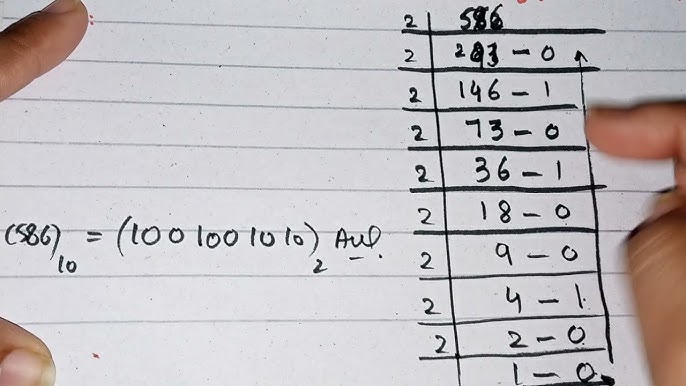 2 586
2 293 - 0
2 146 - 1
2 73 - 0
2 36 - 1
2 18 - 0
2 9 - 0
2 4 - 1
2 2 - 0
1 - 0
(586)10 = (1001001010)2 Ans.